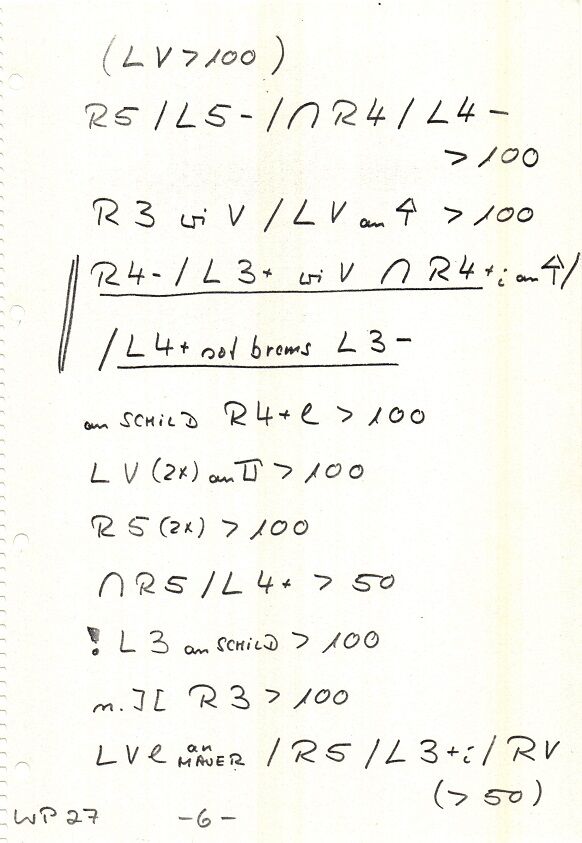 (LV > 100)
R5 / L5- / ∩ R4 / L4-
> 100
R3 wi V / LV an ⇑ > 100
R4- / L3+ wi V ∩ R4+i an ⇑ /
/ L4+ not brems L3-
an SCHILD R4+e > 100
LV (2x) an > 100
R5 (2x) > 100
∩ R5 / L4+ > 50
! L3 an SCHILD > 100
n. ][ R3 > 100
LVe an MAUER / R5 / L3+i / RV
(> 50)
WP 27 -6-